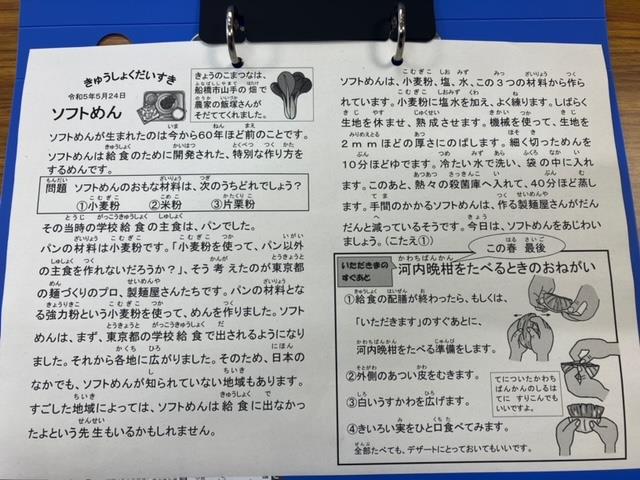 きゅうしょくだいすき
令和5年5月24日
ソフトめん
きょうのこまつなは、
船橋市山手の畑で
農家の飯塚さんが
そだててくれました。
ソフトめんが生まれたのは今から60年ほど前のことです。
ソフトめんは給食のために開発された、特別な作り方を
するめんです。
問題 ソフトめんのおもな材料は、次のうちどれでしょう？
①小麦粉 ②米粉 ③片栗粉
その当時の学校給食の主食は、パンでした。
パンの材料は小麦粉です。「小麦粉を使って、パン以外
の主食を作れないだろうか？」、そう考えたのが東京都
の麺づくりのプロ、製麺屋さんたちです。パンの材料とな
る強力粉という小麦粉を使って、めんを作りました。ソフト
めんは、まず、東京都の学校給食で出されるようになり
ました。それから各地に広がりました。そのため、日本の
なかでも、ソフトめんが知られていない地域もあります。
すごした地域によっては、ソフトめんは給食に出なかっ
たよという先生もいるかもしれません。
ソフトめんは、小麦粉、塩、水、この3つの材料から作ら
れています。小麦粉に塩水を加え、よく練ります。しばらく
生地を休ませ、熟成させます。機械を使って、生地を
2mmほどの厚さにのばします。細く切っためんを
10分ほどゆでます。冷たい水で洗い、袋の中に入れ
ます。このあと、熱々の殺菌庫へ入れて、40分ほど蒸し
ます。手間のかかるソフトめんは、作る製麺屋さんがだん
だんと減っているそうです。今日は、ソフトめんをあじわい
ましょう。（こたえ①）
この春 最後
いただきまの
すぐあと
河内晩柑をたべるときのおねがい
①給食の配膳が終わったら、もしくは、
「いただきます」のすぐあとに、
河内晩柑をたべる準備をします。
②外側のあつい皮をむきます。
③白いうすかわを広げます。
④きいろい実をひと口食べてみます。
全部たべても、デザートにとっておいてもいいです。
てについたかわち
ばんかんのしるは
てに すりこんでも
いいですよ。